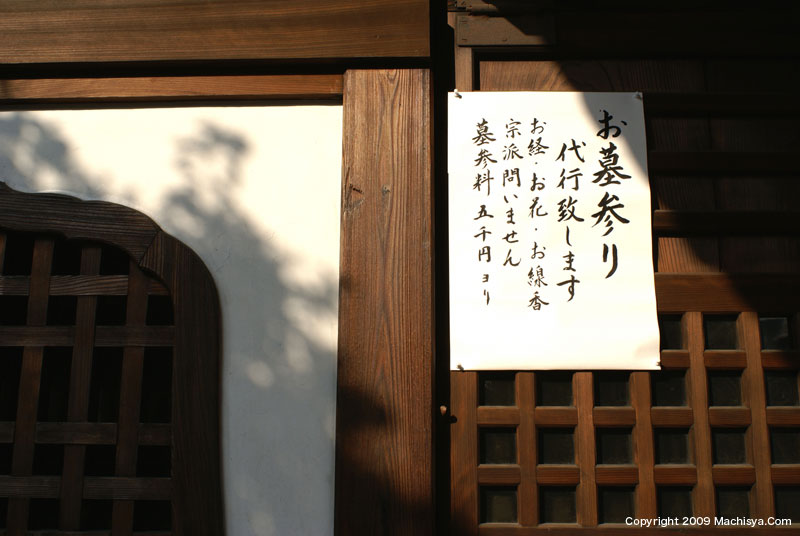 お墓参り
代行致します
お経・お花・お線香
宗派問いません
墓参料 五千円ヨリ
Copyright 2009 Machisya.Com